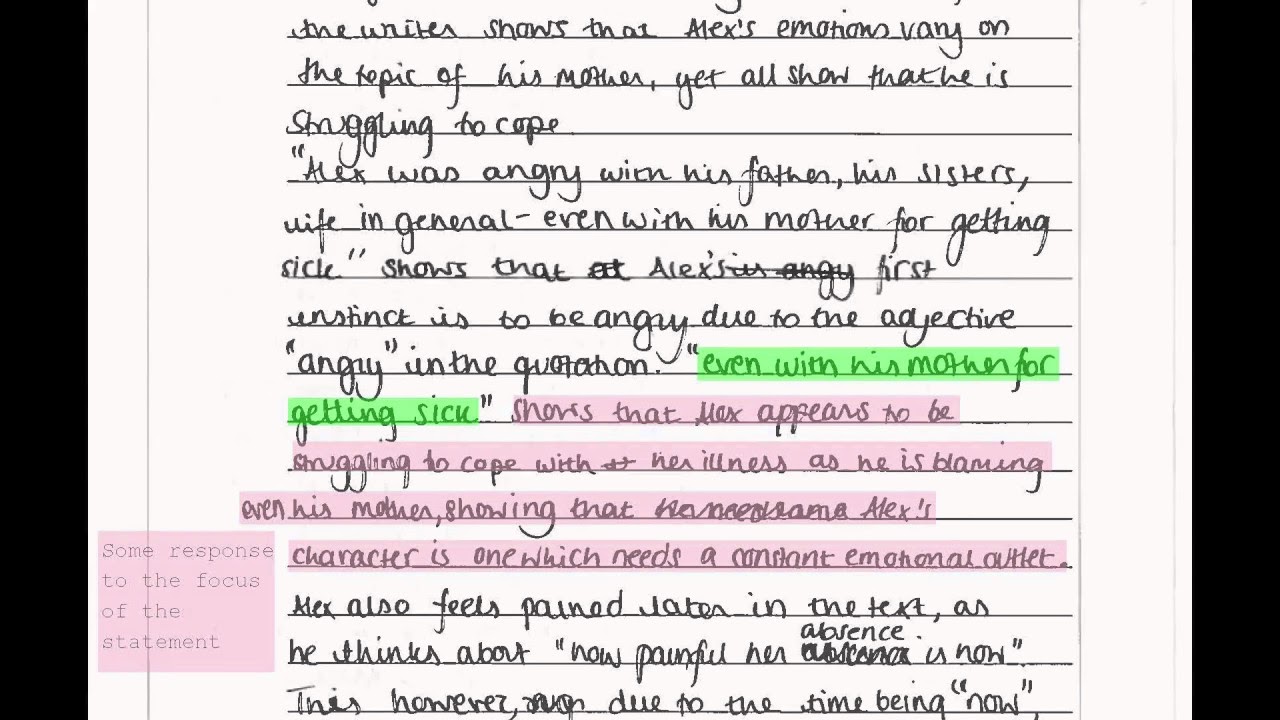 the writer shows that Alex's emotions vary on
the topic of his mother, yet all show that he is
struggling to cope
"Alex was angry with his father, his sisters,
life in general - even with his mother for getting
sick" shows that Alex's first
instinct is to be angry due to the adjective
"angry" in the quotation. "even with his mother for
getting sick" shows that Alex appears to be
struggling to cope with her illness as he is blaming
even his mother, showing that Alex's
character is one which needs a constant emotional outlet.
Some response
to the focus
of the
statement
Alex also feels pained later in the text, as
absence.
he thinks about "how painful her is now".
This however, due to the time being "now",